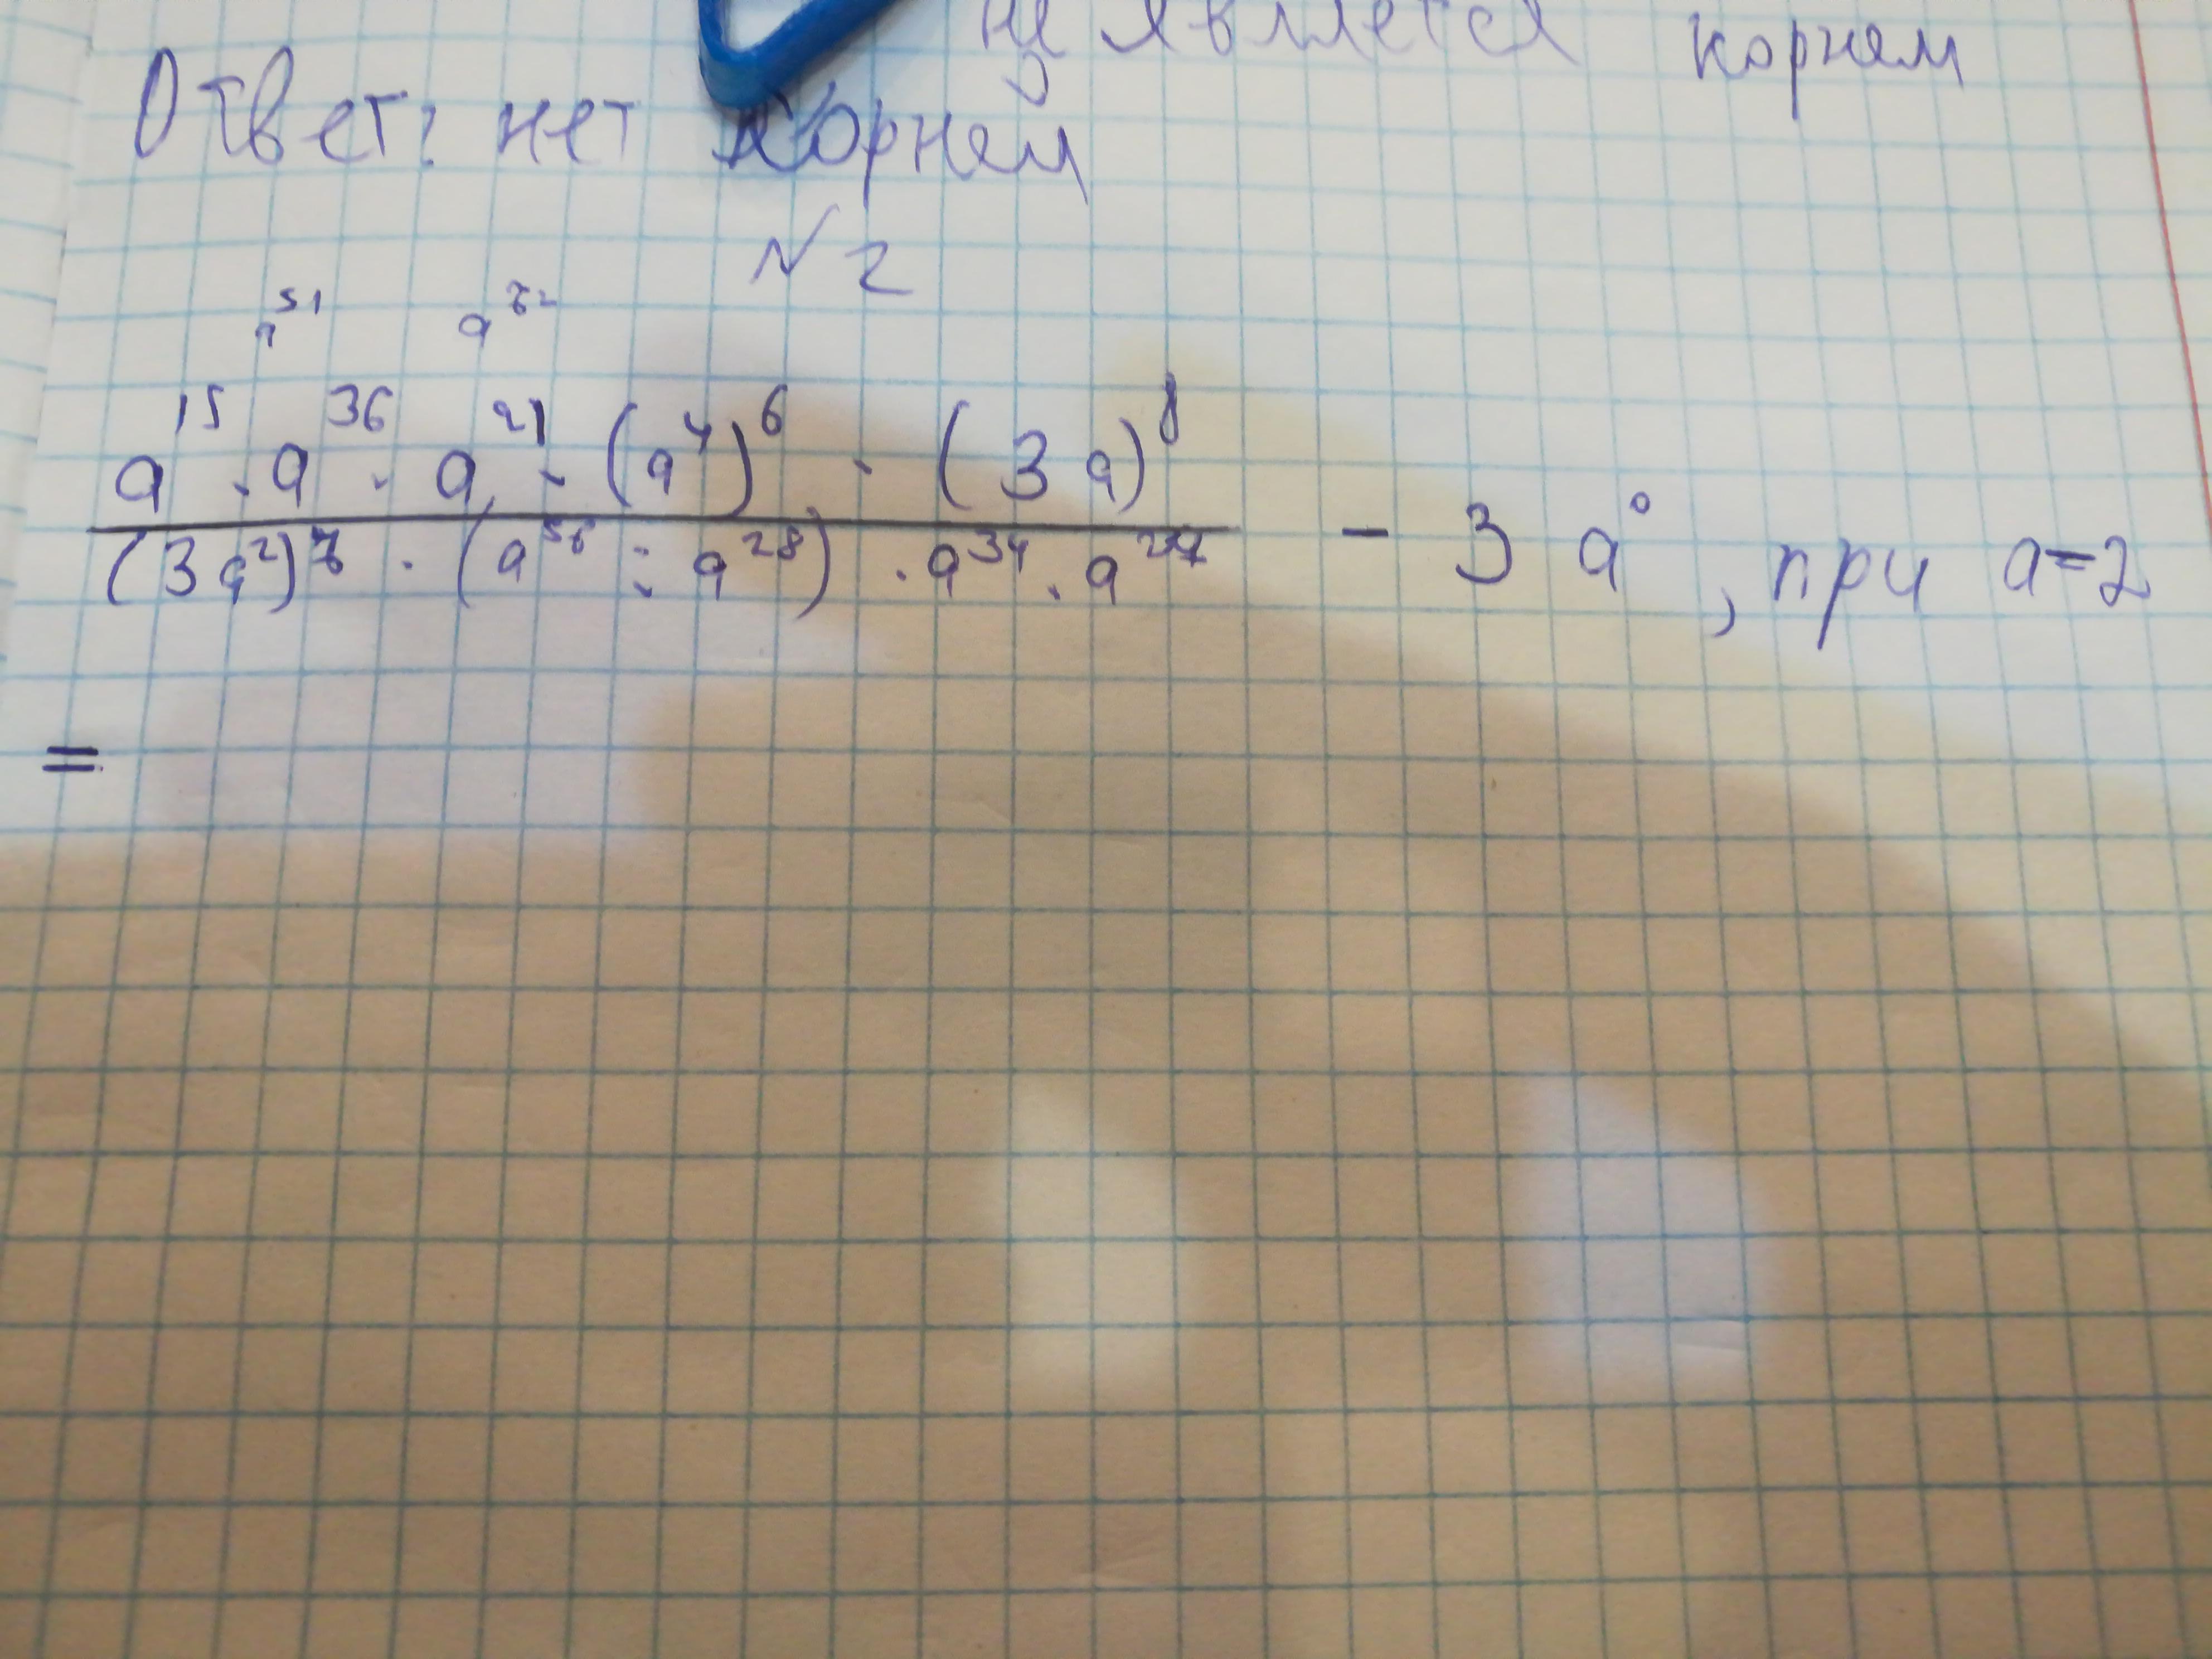 не является корнем
Ответ: нет корней
№ 2
a^51 a^72
a^15 · a^36 · a^21 · (a^4)^6 · (3a)^8
(3a^2)^7 · (a^56 : a^28) · a^34 · a^27 - 3a^0, при a=2
=